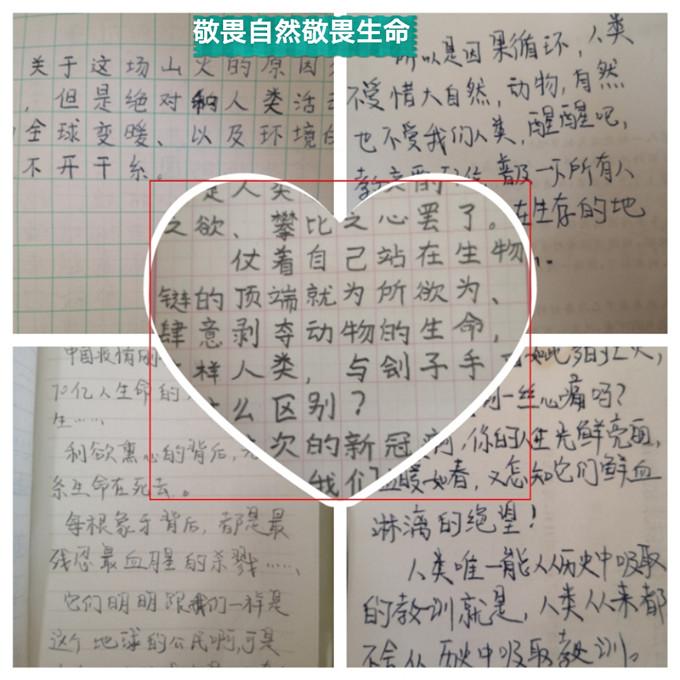 敬畏自然敬畏生命
关于这场山火的原因
，但是绝对和人类活
全球变暖、以及环境的
不开干系。
所以是因果循环，人类
不爱惜大自然，动物，自然
也不爱我们人类，醒醒吧，
所有人
在生存的地
是人类
之欲、攀比之心罢了。
仗着自己站在生物
链的顶端就为所欲为、
肆意剥夺动物的生命，
样人类，与刽子手
么区别？
次的新冠
我们
中国疫情
70亿人生命的
生……
利欲熏心的背后，
条生命在死去。
每根象牙背后，都是最
残忍最血腥的杀戮……
它们明明跟我们一样是
这个地球的公民啊，可是
一丝心痛吗？
啊，你的人生光鲜亮丽，
温暖如春，又怎知它们鲜血
淋漓的绝望！
人类唯一能从历史中吸取
的教训就是，人类从来都
不会从历史中吸取教训。